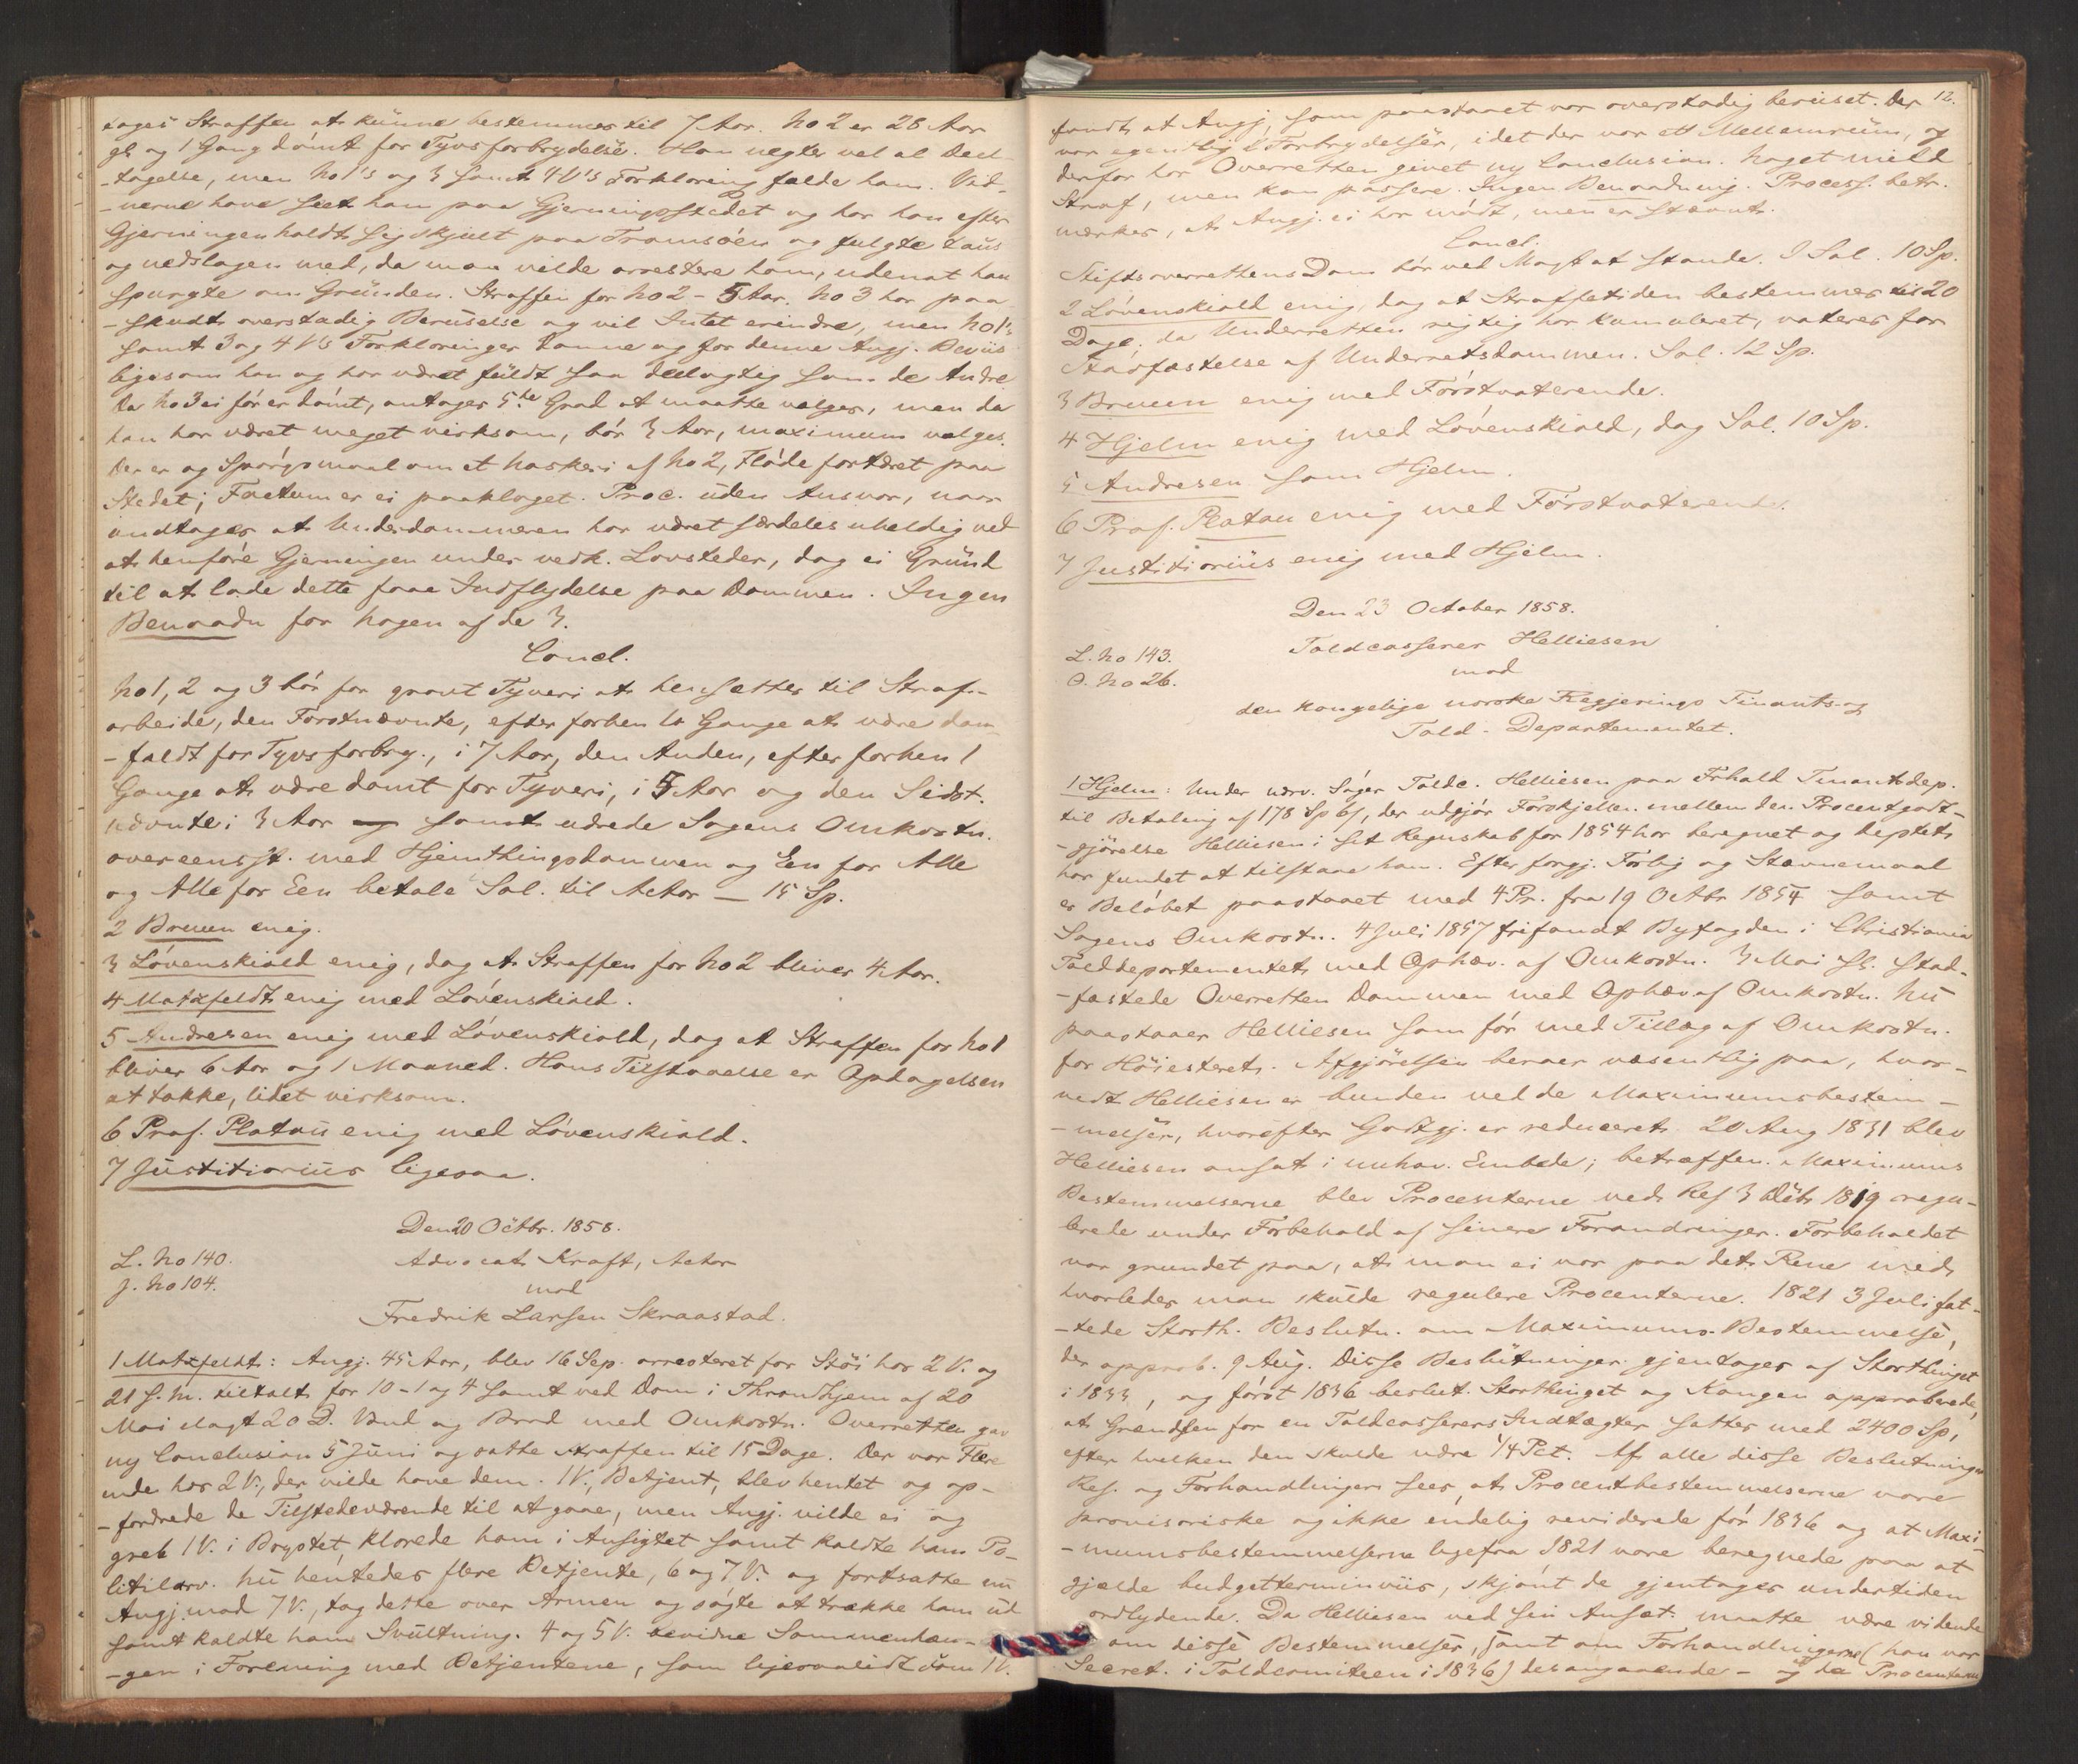 tages Straffen at kunne bestemmes til 7 Aar. No 2 er 28 Aar
gl. og 1 Gang dömt for Tyvsforbrydelse. Han negter vel al Deel-
-tagelse, men No 1's og 3 samt 4 V's Forklaring fælde ham. Vid-
-nerne have seet ham paa Gjerningsstedet og har han efter
Gjerningen holdt sig skjult paa Tromsöen og fulgte taus
og nedslagen med, da man vilde arrestere ham, uden at han
spurgte om Grunden. Straffen for No 2 - 5 Aar. No 3 har paa-
-skudt overstadig Beruselse og vil Intet erindre, men No 1's
samt 3 og 4 V's Forklaringer danne og for denne Angj. Beviis
ligesom han og har været fuldt saa deelagtig som de Andre
Da No 3 ei för er dömt, antages 5te Grad at maatte vælges, men da
han har været meget virksom, bör 3 Aar, maximum vælges.
Der er og Spörgsmaal om et Naskeri af No 2, Flöde fortæret paa
Stedet; Factum er ei paaklaget. Proc. uden Ansvar, naar
undtages at Underdommeren har været særdeles uheldig ved
at henföre Gjerningen under vedk. Lovsteder, dog ei Grund
til at lade dette faae Indflydelse paa Dommen. Ingen
Benaadn for Nogen af de 3.
Concl.
No 1, 2 og 3 bör for grovt Tyveri at hensættes til Straf-
arbeide, den Förstnævnte, efter forhen 6 Gange at være dom-
-fældt for Tyvsforbry., i 7 Aar, den Anden, efter forhen 1
Gange at være dömt for Tyveri, i 5 Aar og den Sidst-
nævnte i 3 Aar og samt udrede Sagens Omkostn.
overeensst. med Hjemthingsdommen og Een for Alle
og Alle for Een betale Sal. til Actor — 15 Sp.
2 Bruun enig.
3 Lövenskiold enig, dog at Straffen for No 2 bliver 4 Aar.
4 Motzfeldt enig med Lövenskiold.
5 Andresen enig med Lövenskiold, dog at Straffen for No 1
bliver 6 Aar og 1 Maaned. Hans Tilstaaelse er Opdagelsen
at takke, lidet virksom.
6 Prof. Platou enig med Lövenskiold.
7 Justitiarius ligesaa.
Den 20 Octbr. 1858.
L. No 140.
Advocat Kraft, Actor
J. No 104.
mod
Fredrik Larsen Skraastad.
1 Motzfeldt: Angj. 45 Aar, blev 16 Sep. arresteret for Stöi hos 2 V. og
21 s. M. tiltalt for 10-1 og 4 samt ved Dom i Throndhjem af 20
Mai ilagt 20 D. Vand og Bröd med Omkostn. Overretten gav
ny Conclusion 5 Juni og satte Straffen til 15 Dage. Der var Flere
inde hos 2 V., der vilde have dem. 1 V., Betjent, blev hentet og op-
-fordrede de Tilstedeværende til at gaae, men Angj. vilde ei og
greb 1 V. i Brystet, klorede ham i Ansigtet samt kaldte ham Po-
litilarv. Nu hentedes flere Betjente, 6 og 7 V. og fortsatte nu
Angj. mod 7 V., tog dette over Armen og sögte at trække ham ud
samt kaldte ham Svultning. 4 og 5 V. bevidne Sammenhæn-
-gen i Forening med Betjentene, som ligesaalidt som 1 V.
12.
fandt at Angj. som paastaaet var overstadig beruset. Der
var egentlig 2 Forbrydelser, idet der var ett Mellemrum, og
derfor har Overretten givet ny Conclusion. Noget mild
Straf, men kan passere. Ingen Benaadning. Process. be-
mærkes, at Angj. ei har mödt, men er stævnt.
Concl.
Stiftsoverrettens Dom bör ved Magt at stande. I Sal. 10 Sp.
2 Lövenskiold enig, dog at Straffetiden bestemmes til 20
Dage, da Underretten rigtig har kumuleret, voterer for
Stadfæstelse af Underretsdommen. Sal. 12 Sp.
3 Bruun enig med Förstvoterende.
4 Hjelm enig med Lövenskiold, dog Sal. 10 Sp.
5 Andresen som Hjelm.
6 Prof. Platou enig med Förstvoterende.
7 Justitiarius enig med Hjelm.
Den 23 October 1858.
Toldcasserer Helliesen
L. No 143.
mod
O. No 26.
den kongelige norske Regjerings Finants- og
Told-Departementet.
1 Hjelm: Under nærv. Söger Toldc. Helliesen paa Frhald Finantsdep.
til Betaling af 178 Sp 6 s, der udgjör Forskjellen mellem den Procentgodt-
-gjörelse Helliesen i sit Regnskab for 1854 har beregnet og Deptet
har fundet at tilstaae ham. Efter forgj. Forlig og Stævnemaal
er Belöbet paastaaet med 4 Pr. fra 19 Octbr 1854 samt
Sagens Omkostn. 4 Juli 1857 frifandt Byfogden i Christiania
Tolddepartementet med Ophæv. af Omkostn. 3 Mai sl. stad-
-fæstede Overretten Dommen med Ophæv af Omkostn. Nu
paastaaer Helliesen som för med Tillæg af Omkostn.
for Höiesteret. Afgjörelsen beroer væsentlig paa, hvor-
vidt Helliesen er bunden ved de Maximumsbestem-
-melser, hvorefter Godtgj. er reduceret. 20 Aug 1831 blev
Helliesen ansat i innhav. Embede; betræffen. Maximums
Bestemmelserne blev Procenterne ved Res 3 Octb 1819 regu-
lerede under Forbehold af senere Forandringer. Forbeholdet
var grundet paa, at man ei var paa det Rene med
hvorledes man skulde regulere Procenterne. 1821 3 Juli fat-
-tede Storth. Beslutn. om Maximums-Bestemmelse,
der approb. 9 Aug. Disse Beslutninger gjentages af Storthinget
i 1833, og först 1836 beslut. Storthinget og Kongen approberede,
at Grændsen for en Toldcasserers Indtægter sattes med 2400 Sp,
efter hvilken den skulde være 1/4 Pct. Af alle disse Beslutninger
Res. og Forhandlinger sees, at Procentbestemmelserne vare
provisoriske og ikke endelig reviderede för 1836 og at Maxi-
-mumsbestemmelserne ligefra 1821 vare beregnede paa at
gjælde budgetterminviis, skjönt de gjentages undertiden
ordlydende. Da Helliesen ved sin Ansæt. maatte være vidende
om disse Bestemmelser, samt om Forhandlingerne (han var
Secret. i Toldcomiteen i 1836) desangaaende - og da Procenterne